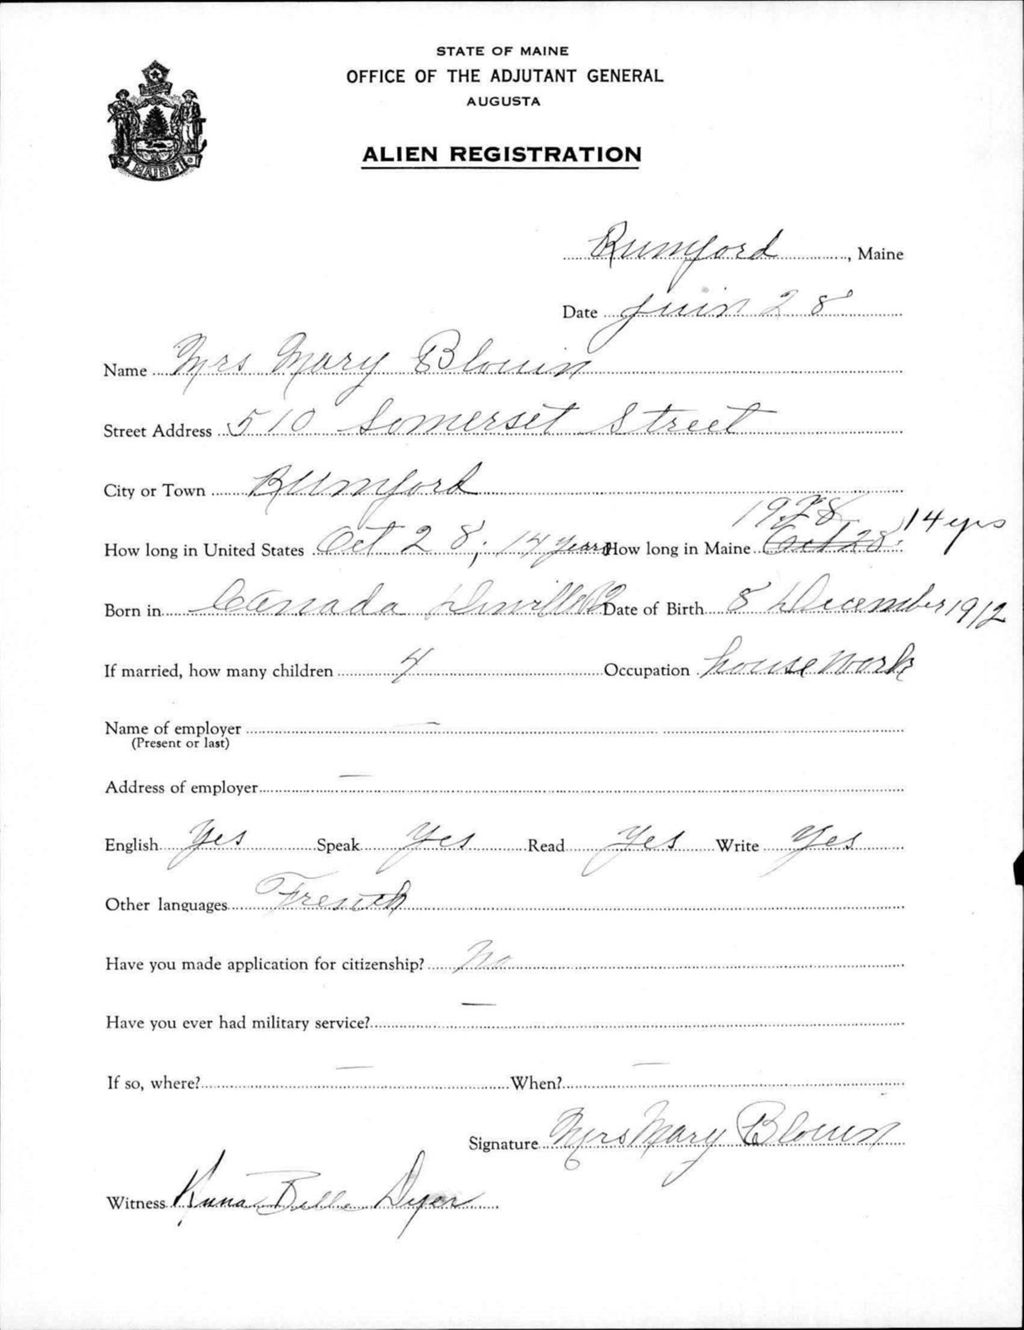 STATE OF MAINE
OFFICE OF THE ADJUTANT GENERAL
AUGUSTA
ALIEN REGISTRATION
MAINE
Rumford, Maine
Date Juin 28
Name Mrs Mary Blouin
Street Address 510 Somerset Street
City or Town Rumford
1928
How long in United States Oct 28, 14 years How long in Maine Oct 28 14 yrs
Born in Canada Date of Birth 8 December 1912
If married, how many children 4 Occupation house Work
Name of employer —
(Present or last)
Address of employer —
English Yes Speak Yes Read Yes Write Yes
Other languages French
Have you made application for citizenship? No
Have you ever had military service? —
If so, where? — When? —
Signature Mrs Mary Blouin
Witness Anna Belle Dyer